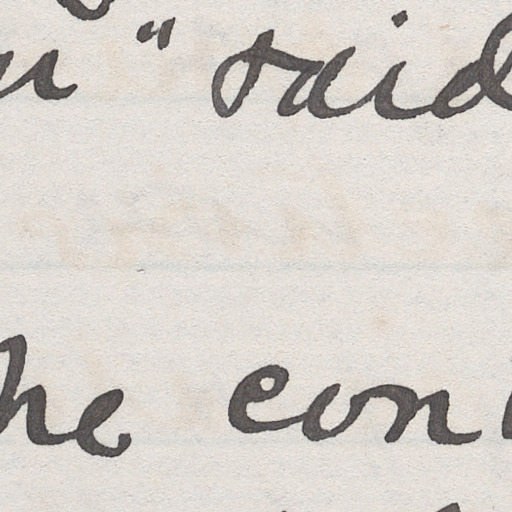 " said
he con